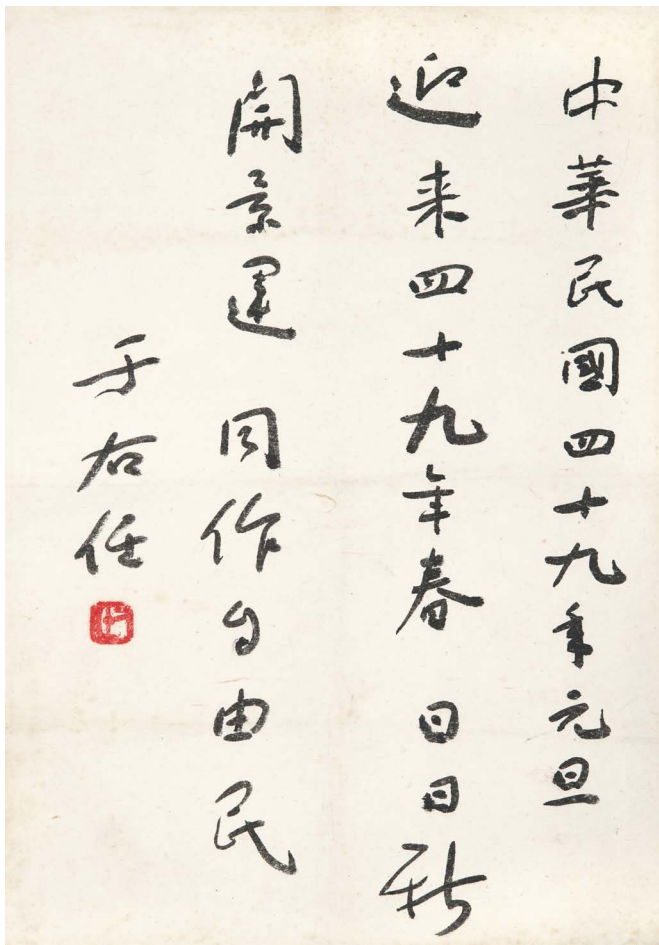 中華民國四十九年元旦
迎来四十九年春 日日新
開景運 同作自由民
于右任